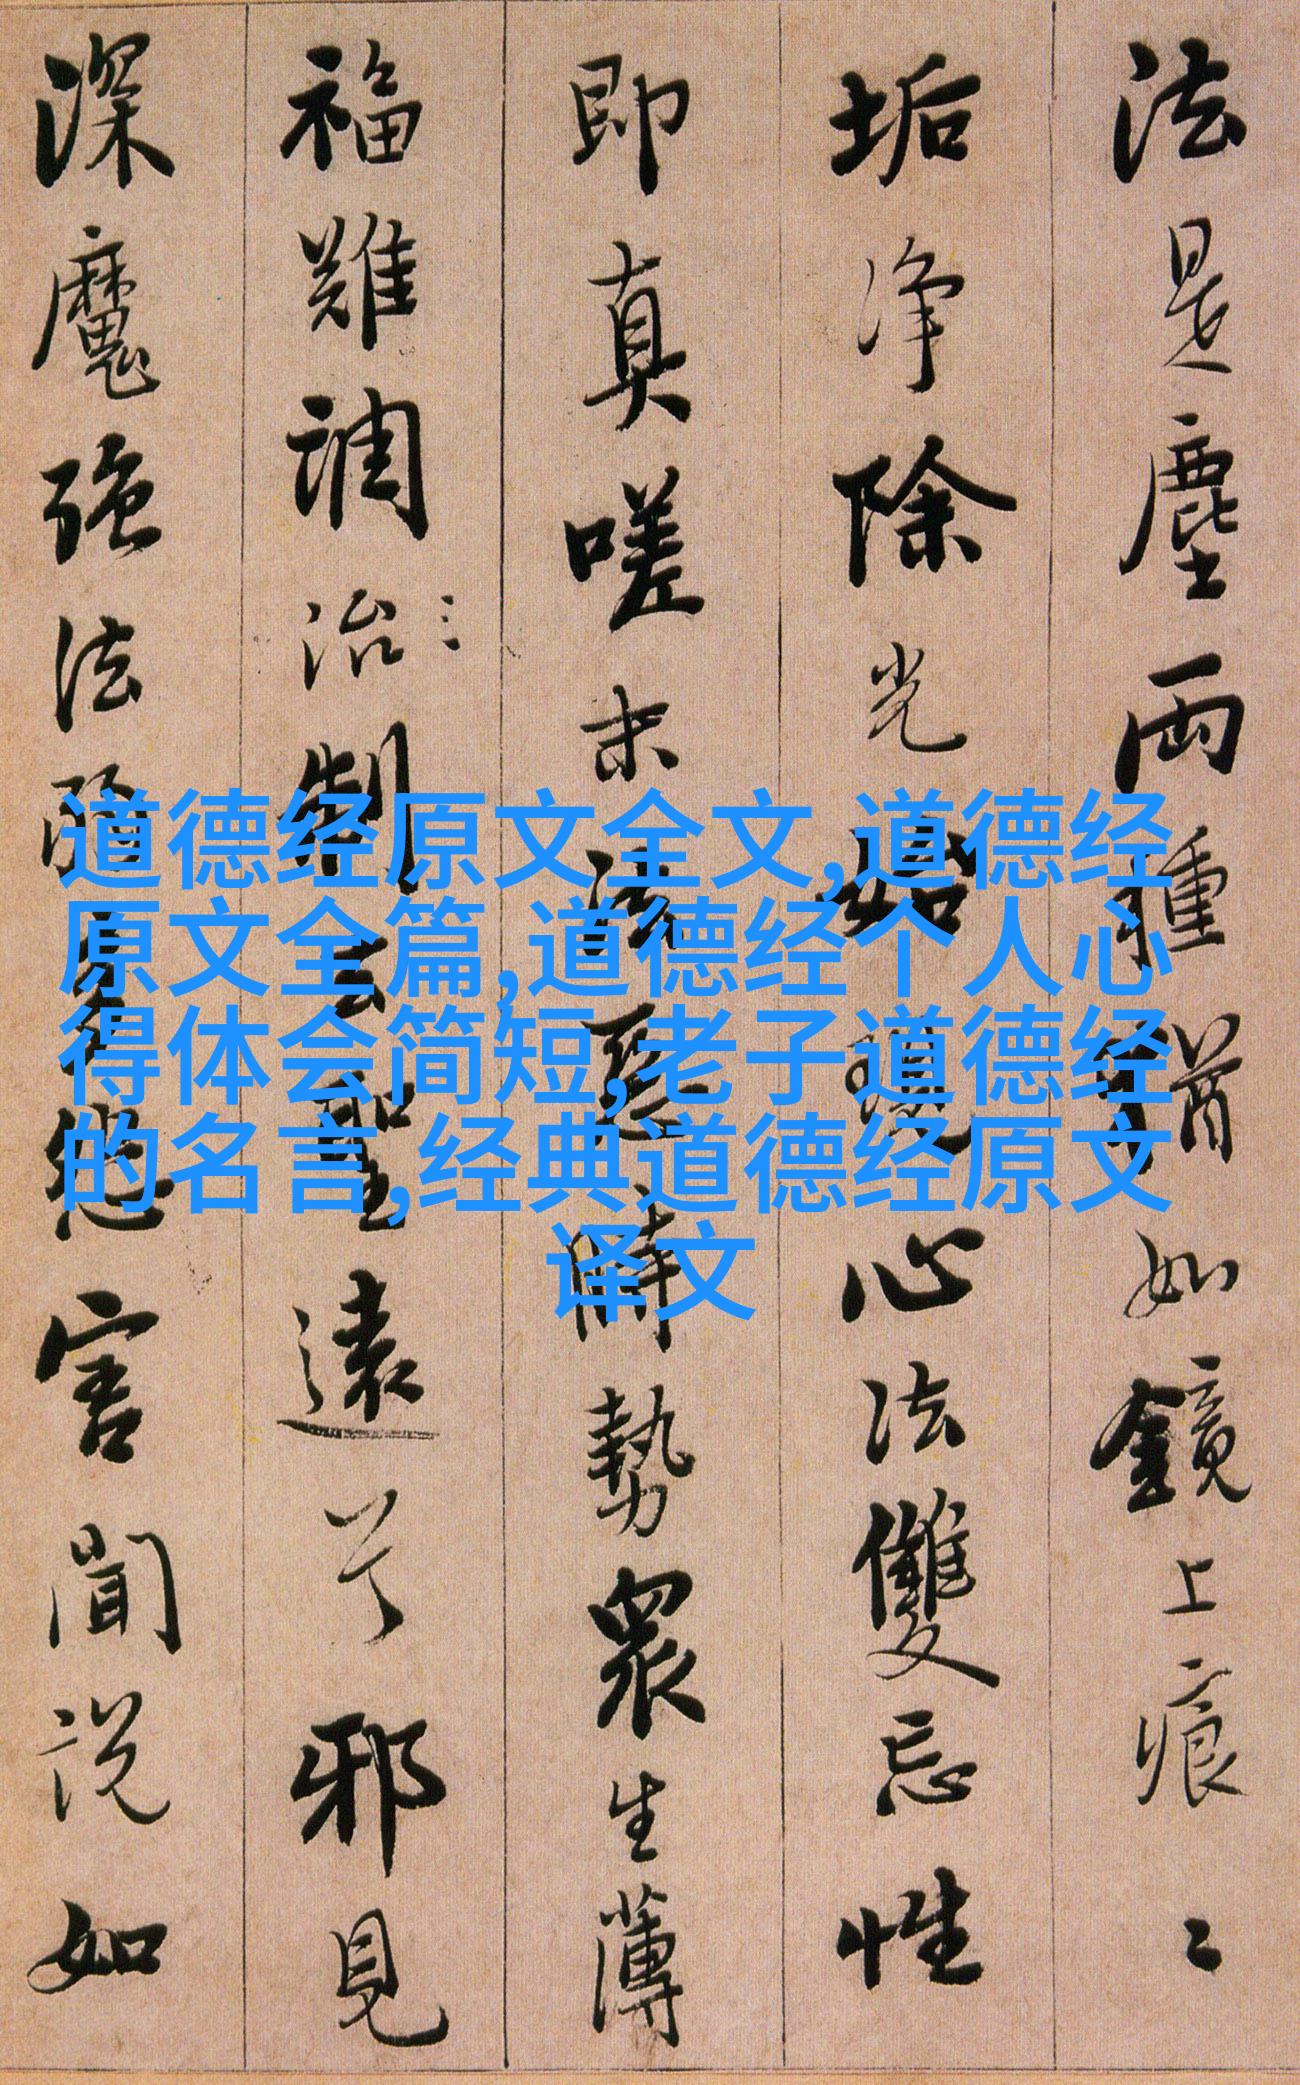 法是塵兩種猶如鏡上痕〻
垢淨除光始現心法雙忘性
即真嗟末法惡時勢衆生薄
福難調治〻制去聖遠兮邪見
深魔強法弱多怨害聞說如
道德经原文全文,道德经
原文全篇,道德经个人心
得体会简短,老子道德经
的名言,经典道德经原文
译文